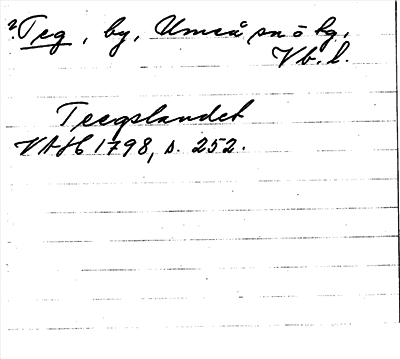 ?Teg, by, Umeå sn o kg,
Vb. l.
Teegslandet
VAH 1798, s. 252.